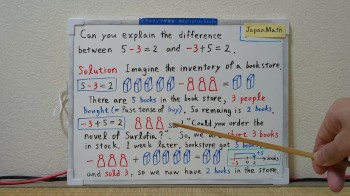 Can you explain the difference
between 5-3=2 and -3+5=2.
JapanMath
Solution Imagine the inventory of a bookstore.
5-3=2
There are 5 books in the book store, 3 people
bought (= Past tense of buy). So remaing is 2 books.
-3+5=2
said "Could you order the
novel of Surlofia?". So, we are short 3 books
in stock. 1 week later, bookstore got 5 books
and sold 3, so we now have 2 books in the store.